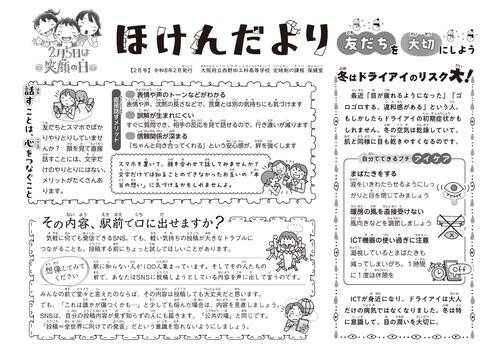 2月5日は
笑顔の日
ほけんだより
友だちを大切にしよう
【2月号】令和8年2月発行　大阪府立西野田工科高等学校 定時制の課程 保健室
話すことは、心をつなぐこと
友だちとスマホでばか
りやりとりしていませ
んか？　顔を見て直接
話すことには、文字だ
けのやりとりにはない、
メリットがたくさんあ
ります。
直接話すメリット
表情や声のトーンなどがわかる
表情や声、沈黙の長さなどで、言葉とは別の気持ちにも気づけます
誤解が生まれにくい
すぐに質問でき、相手の反応を見て話せるので、行き違いが減ります
信頼関係が深まる
「ちゃんと向き合ってくれる」という安心感が、絆を強くします
スマホを置いて、顔を合わせて話してみませんか？
文字だけでは知ることのできなかったお互いの「本
当の想い」に気づけるかもしれませんよ。
その内容、駅前で口に出せますか？
気軽に何でも発信できるSNS。でも、軽い気持ちの投稿が大きなトラブルに
つながることも。投稿する前にちょっと試してほしいことがあります。
想像してみて
ください
駅前に知らない人が100人集まっています。そしてその人たちの
前で、あなたはSNSに投稿しようとしている内容を声に出して言うのです。
みんなの前で堂々と言えたならば、その内容は投稿しても大丈夫だと思います。
でも、「これは誰かが傷つくかも…」と少しでも悩んだ場合は、内容を見直しましょう。
SNSは、自分の投稿内容が見ず知らずの人にも届きます。「公共の場」と同じです。
「投稿＝全世界に向けての発言」だという意識を忘れないようにしましょう。
冬はドライアイのリスク大！
最近「目が疲れるようになった」「ゴ
ロゴロする、違和感がある」という人、
もしかしたらドライアイの初期症状かも
しれません。冬の空気は乾燥していて、
肌と同様に目も乾きやすくなるのです。
自分でできるプチアイケア
まばたきをする
涙をいきわたらせるようにしっ
かりと目を閉じてみましょう
暖房の風を直接受けない
風向きなどを調節しましょう
ICT機器の使い過ぎに注意
凝視しているとまばたきも
減ってしまいがち。1時間
に1度は休憩を
OFF
ICTが身近になり、ドライアイは大人
だけの病気ではなくなりました。冬は特
に意識して、目の潤いを大切に。